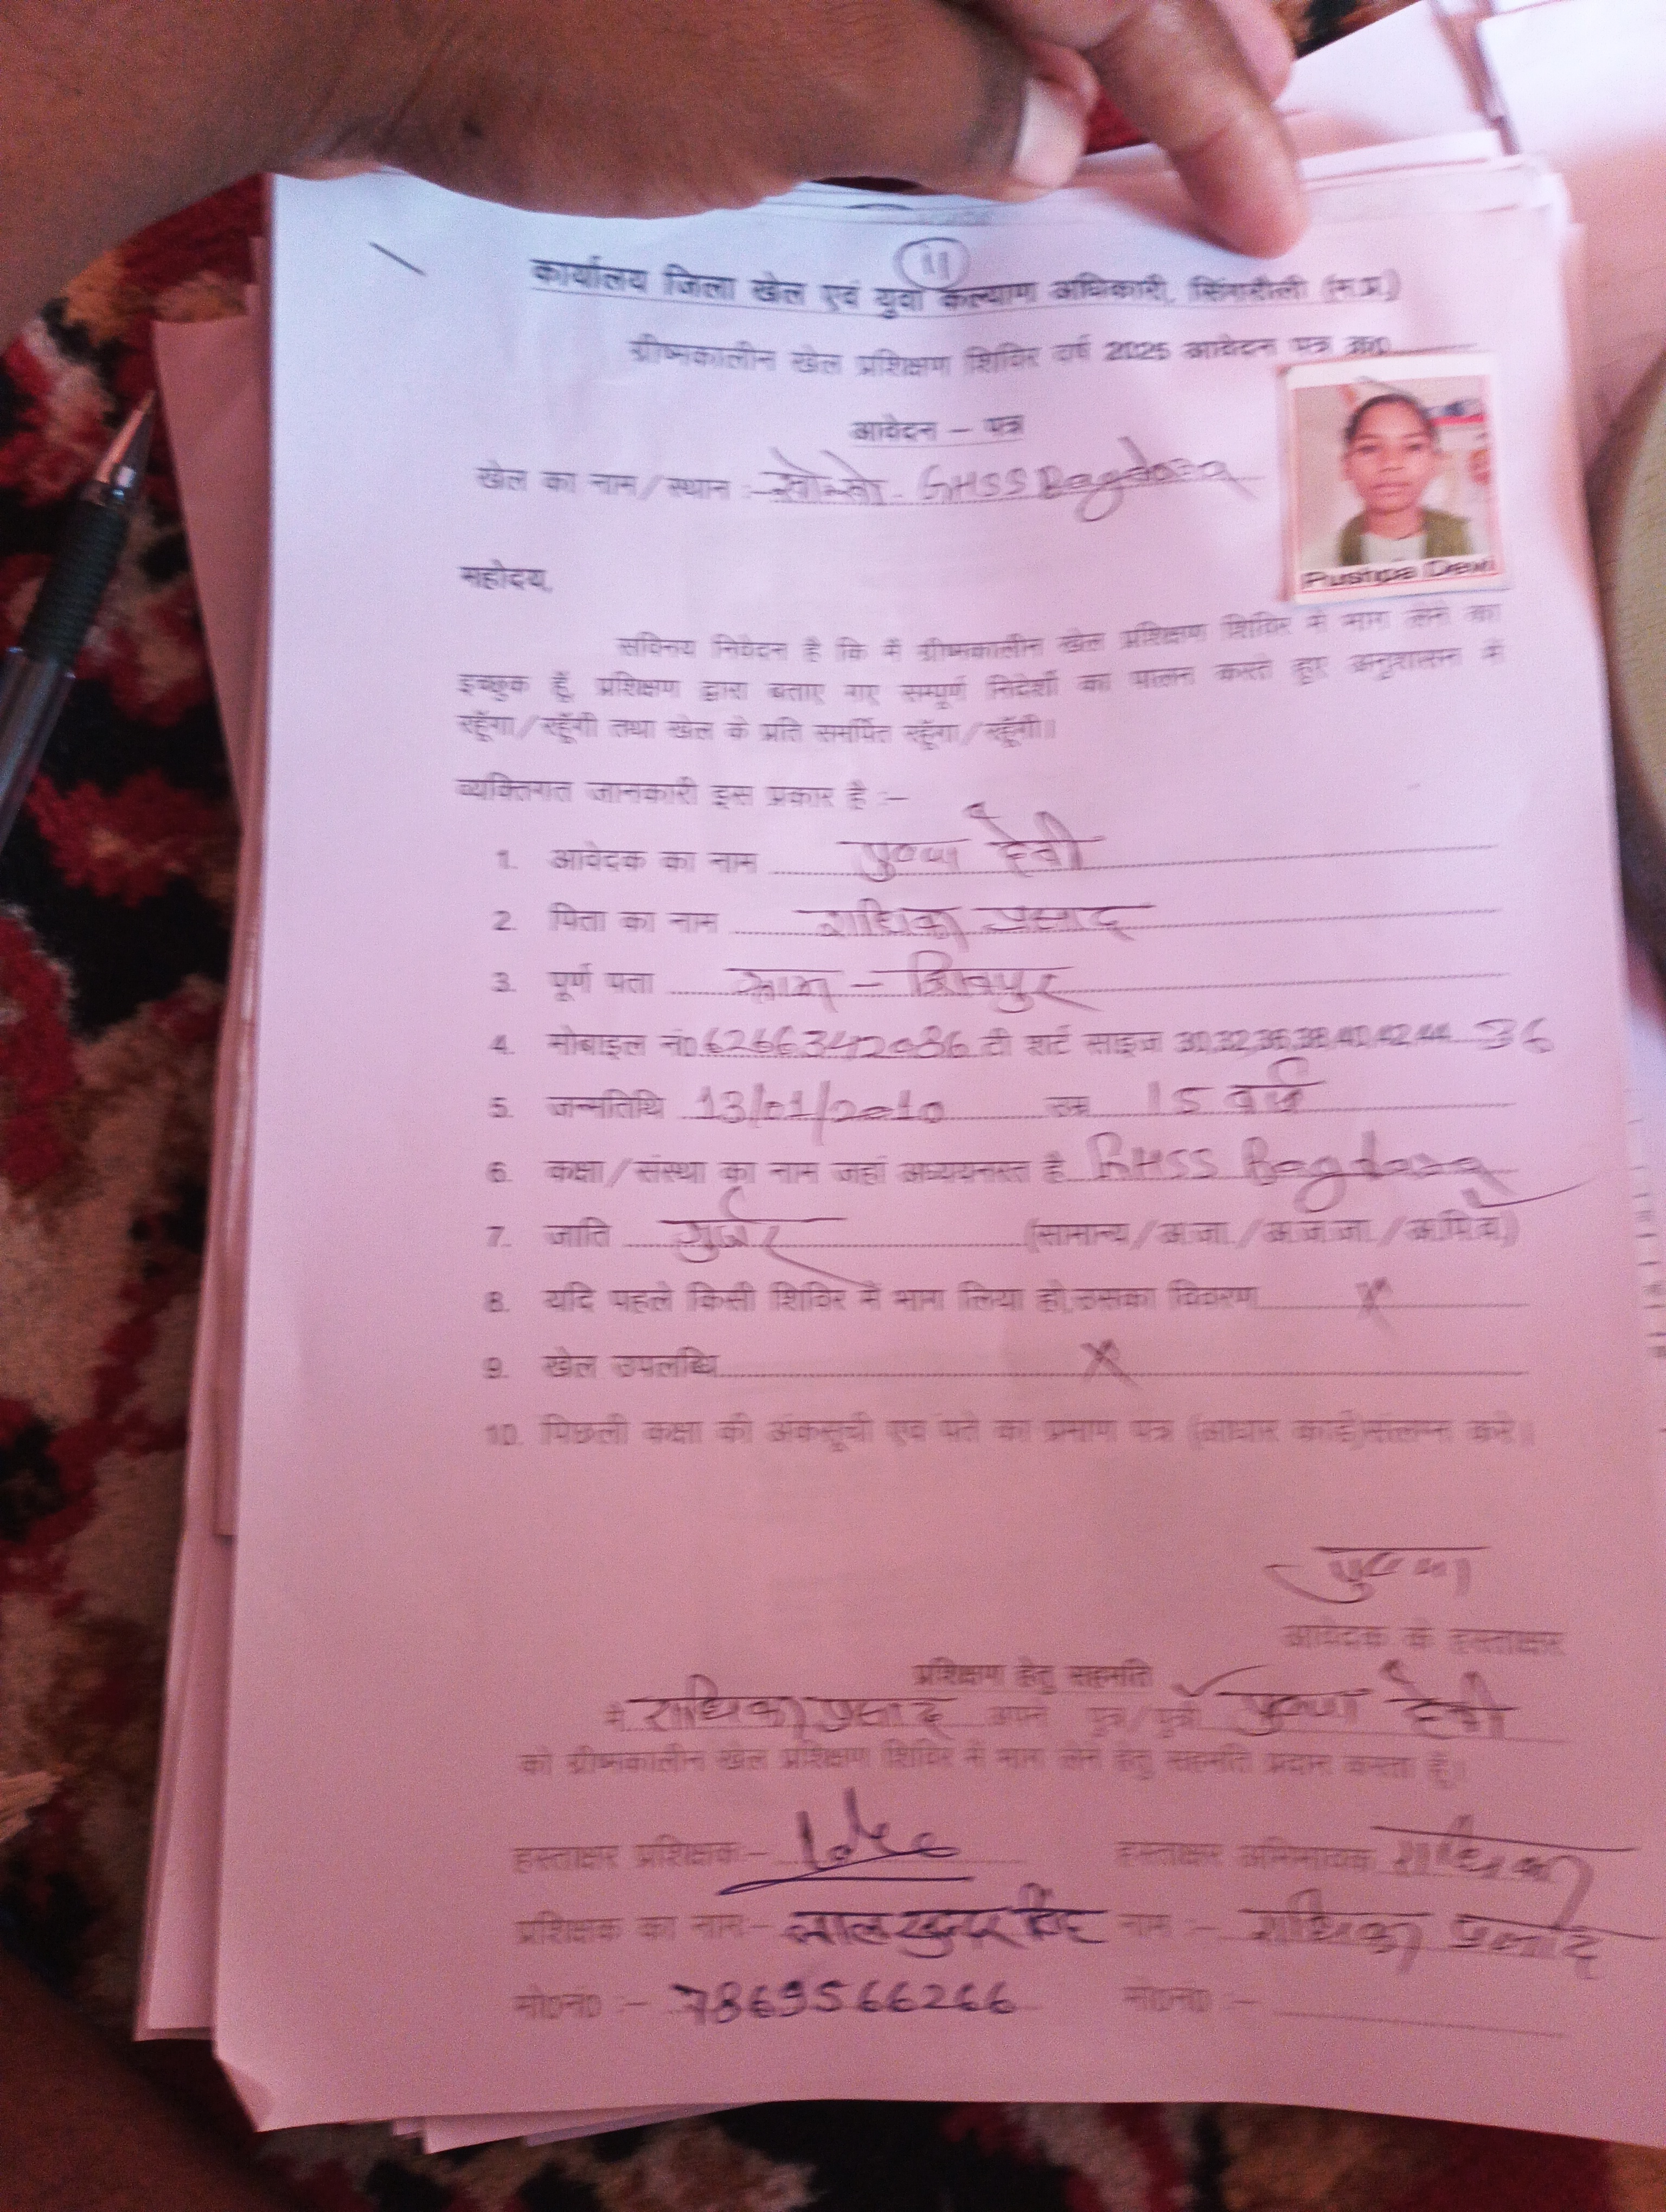 11
कार्यालय जिला खेल एवं युवा कल्याण अधिकारी, सिंगरौली (म.प्र.)
ग्रीष्मकालीन खेल प्रशिक्षण शिविर वर्ष 2025 आवेदन पत्र क्र0
आवेदन – पत्र
खेल का नाम/स्थान :– खो-खो - GHSS Bagdara
Pushpa Devi
महोदय,
सविनय निवेदन है कि मैं ग्रीष्मकालीन खेल प्रशिक्षण शिविर में भाग लेने का
इच्छुक हूँ, प्रशिक्षण द्वारा बताए गए सम्पूर्ण निर्देशों का पालन करते हुए अनुशासन में
रहूँगा/रहूँगी तथा खेल के प्रति समर्पित रहूँगा/रहूँगी।
व्यक्तिगत जानकारी इस प्रकार है :–
1. आवेदक का नाम पुष्पा देवी
2. पिता का नाम राधिका प्रसाद
3. पूर्ण पता ग्राम – शिवपुर
4. मोबाइल नं0 6266342086 टी शर्ट साइज 30,32,36,38,40,42,44 36
5. जन्मतिथि 13/01/2010 उम्र 15 वर्ष
6. कक्षा/संस्था का नाम जहां अध्ययनरत है GHSS Bagdara
7. जाति गुर्जर (सामान्य/अ.जा./अ.ज.जा./अ.पि.व.)
8. यदि पहले किसी शिविर में भाग लिया हो,उसका विवरण X
9. खेल उपलब्धि X
10. पिछली कक्षा की अंकसूची एवं पते का प्रमाण पत्र (आधार कार्ड)संलग्न करे।
पुष्पा
आवेदक के हस्ताक्षर
प्रशिक्षण हेतु सहमति
मैं राधिका प्रसाद अपने पुत्र/पुत्री पुष्पा देवी
को ग्रीष्मकालीन खेल प्रशिक्षण शिविर में भाग लेने हेतु सहमति प्रदान करता हूँ।
हस्ताक्षर प्रशिक्षक:– हस्ताक्षर अभिभावक राधिका
प्रशिक्षक का नाम:– लाल सुन्दर सिंह नाम :– राधिका प्रसाद
मो0नं0 :– 7869566266 मो0नं0 :–